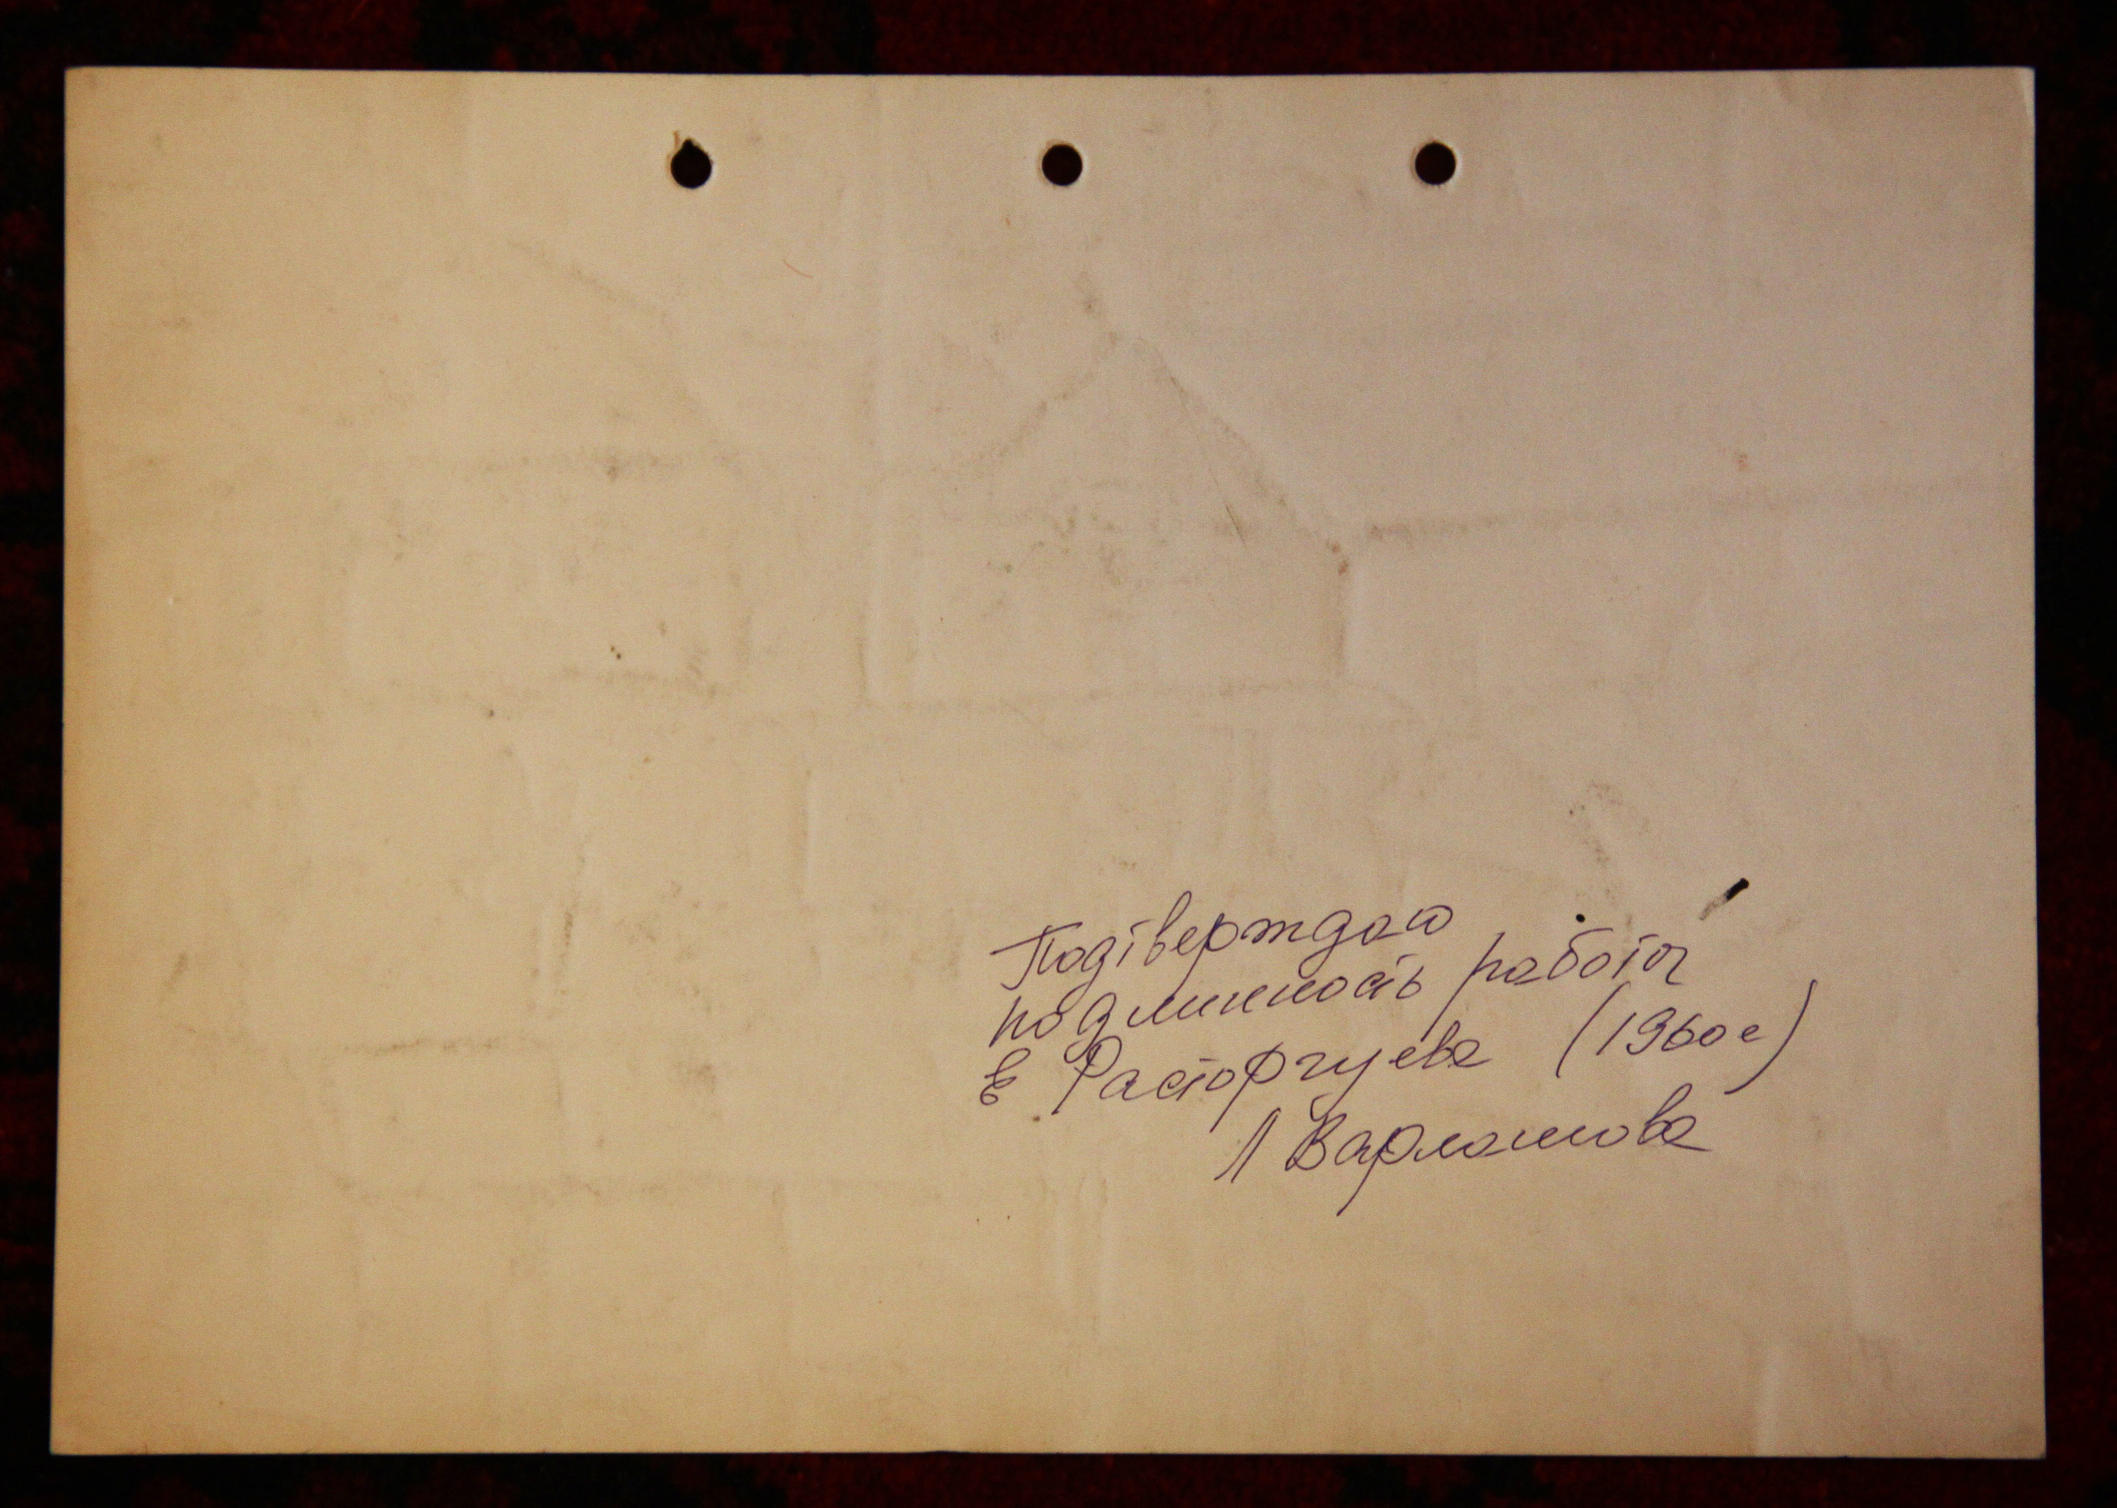 Подтверждаю
подлинность работы
Е Расторгуева (1960е)
Л Варламова